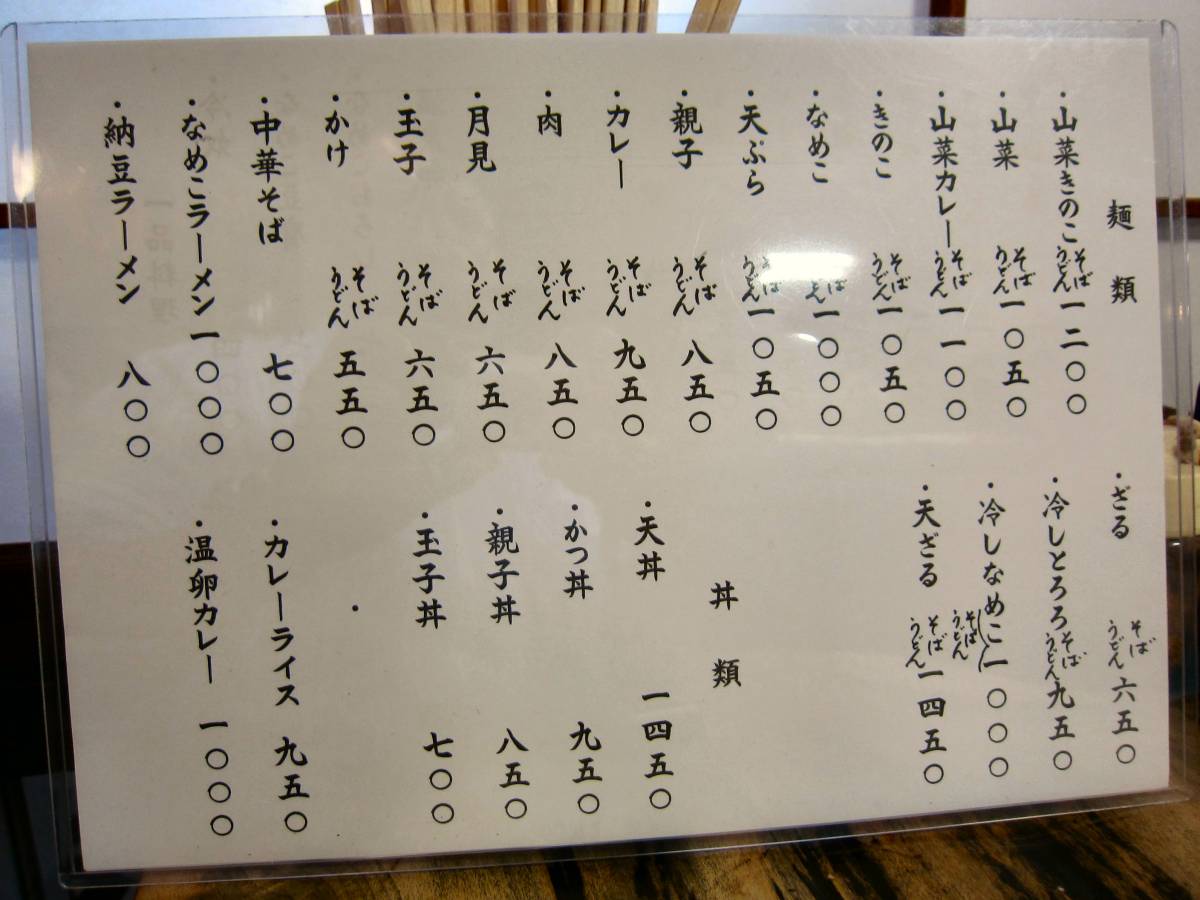 麺類
・山菜きのこ そば うどん 一二〇〇
・山菜 そば うどん 一〇五〇
・山菜カレー そば うどん 一一〇〇
・きのこ そば うどん 一〇五〇
・なめこ そば うどん 一〇〇〇
・天ぷら そば うどん 一〇五〇
・親子 そば うどん 八五〇
・カレー そば うどん 九五〇
・肉 そば うどん 八五〇
・月見 そば うどん 六五〇
・玉子 そば うどん 六五〇
・かけ そば うどん 五五〇
・中華そば 七〇〇
・なめこラーメン 一〇〇〇
・納豆ラーメン 八〇〇
・ざる そば うどん 六五〇
・冷しとろろ そば うどん 九五〇
・冷しなめこ そば うどん 一〇〇〇
・天ざる そば うどん 一四五〇
丼類
・天丼 一四五〇
・かつ丼 九五〇
・親子丼 八五〇
・玉子丼 七〇〇
・
・カレーライス 九五〇
・温卵カレー 一〇〇〇